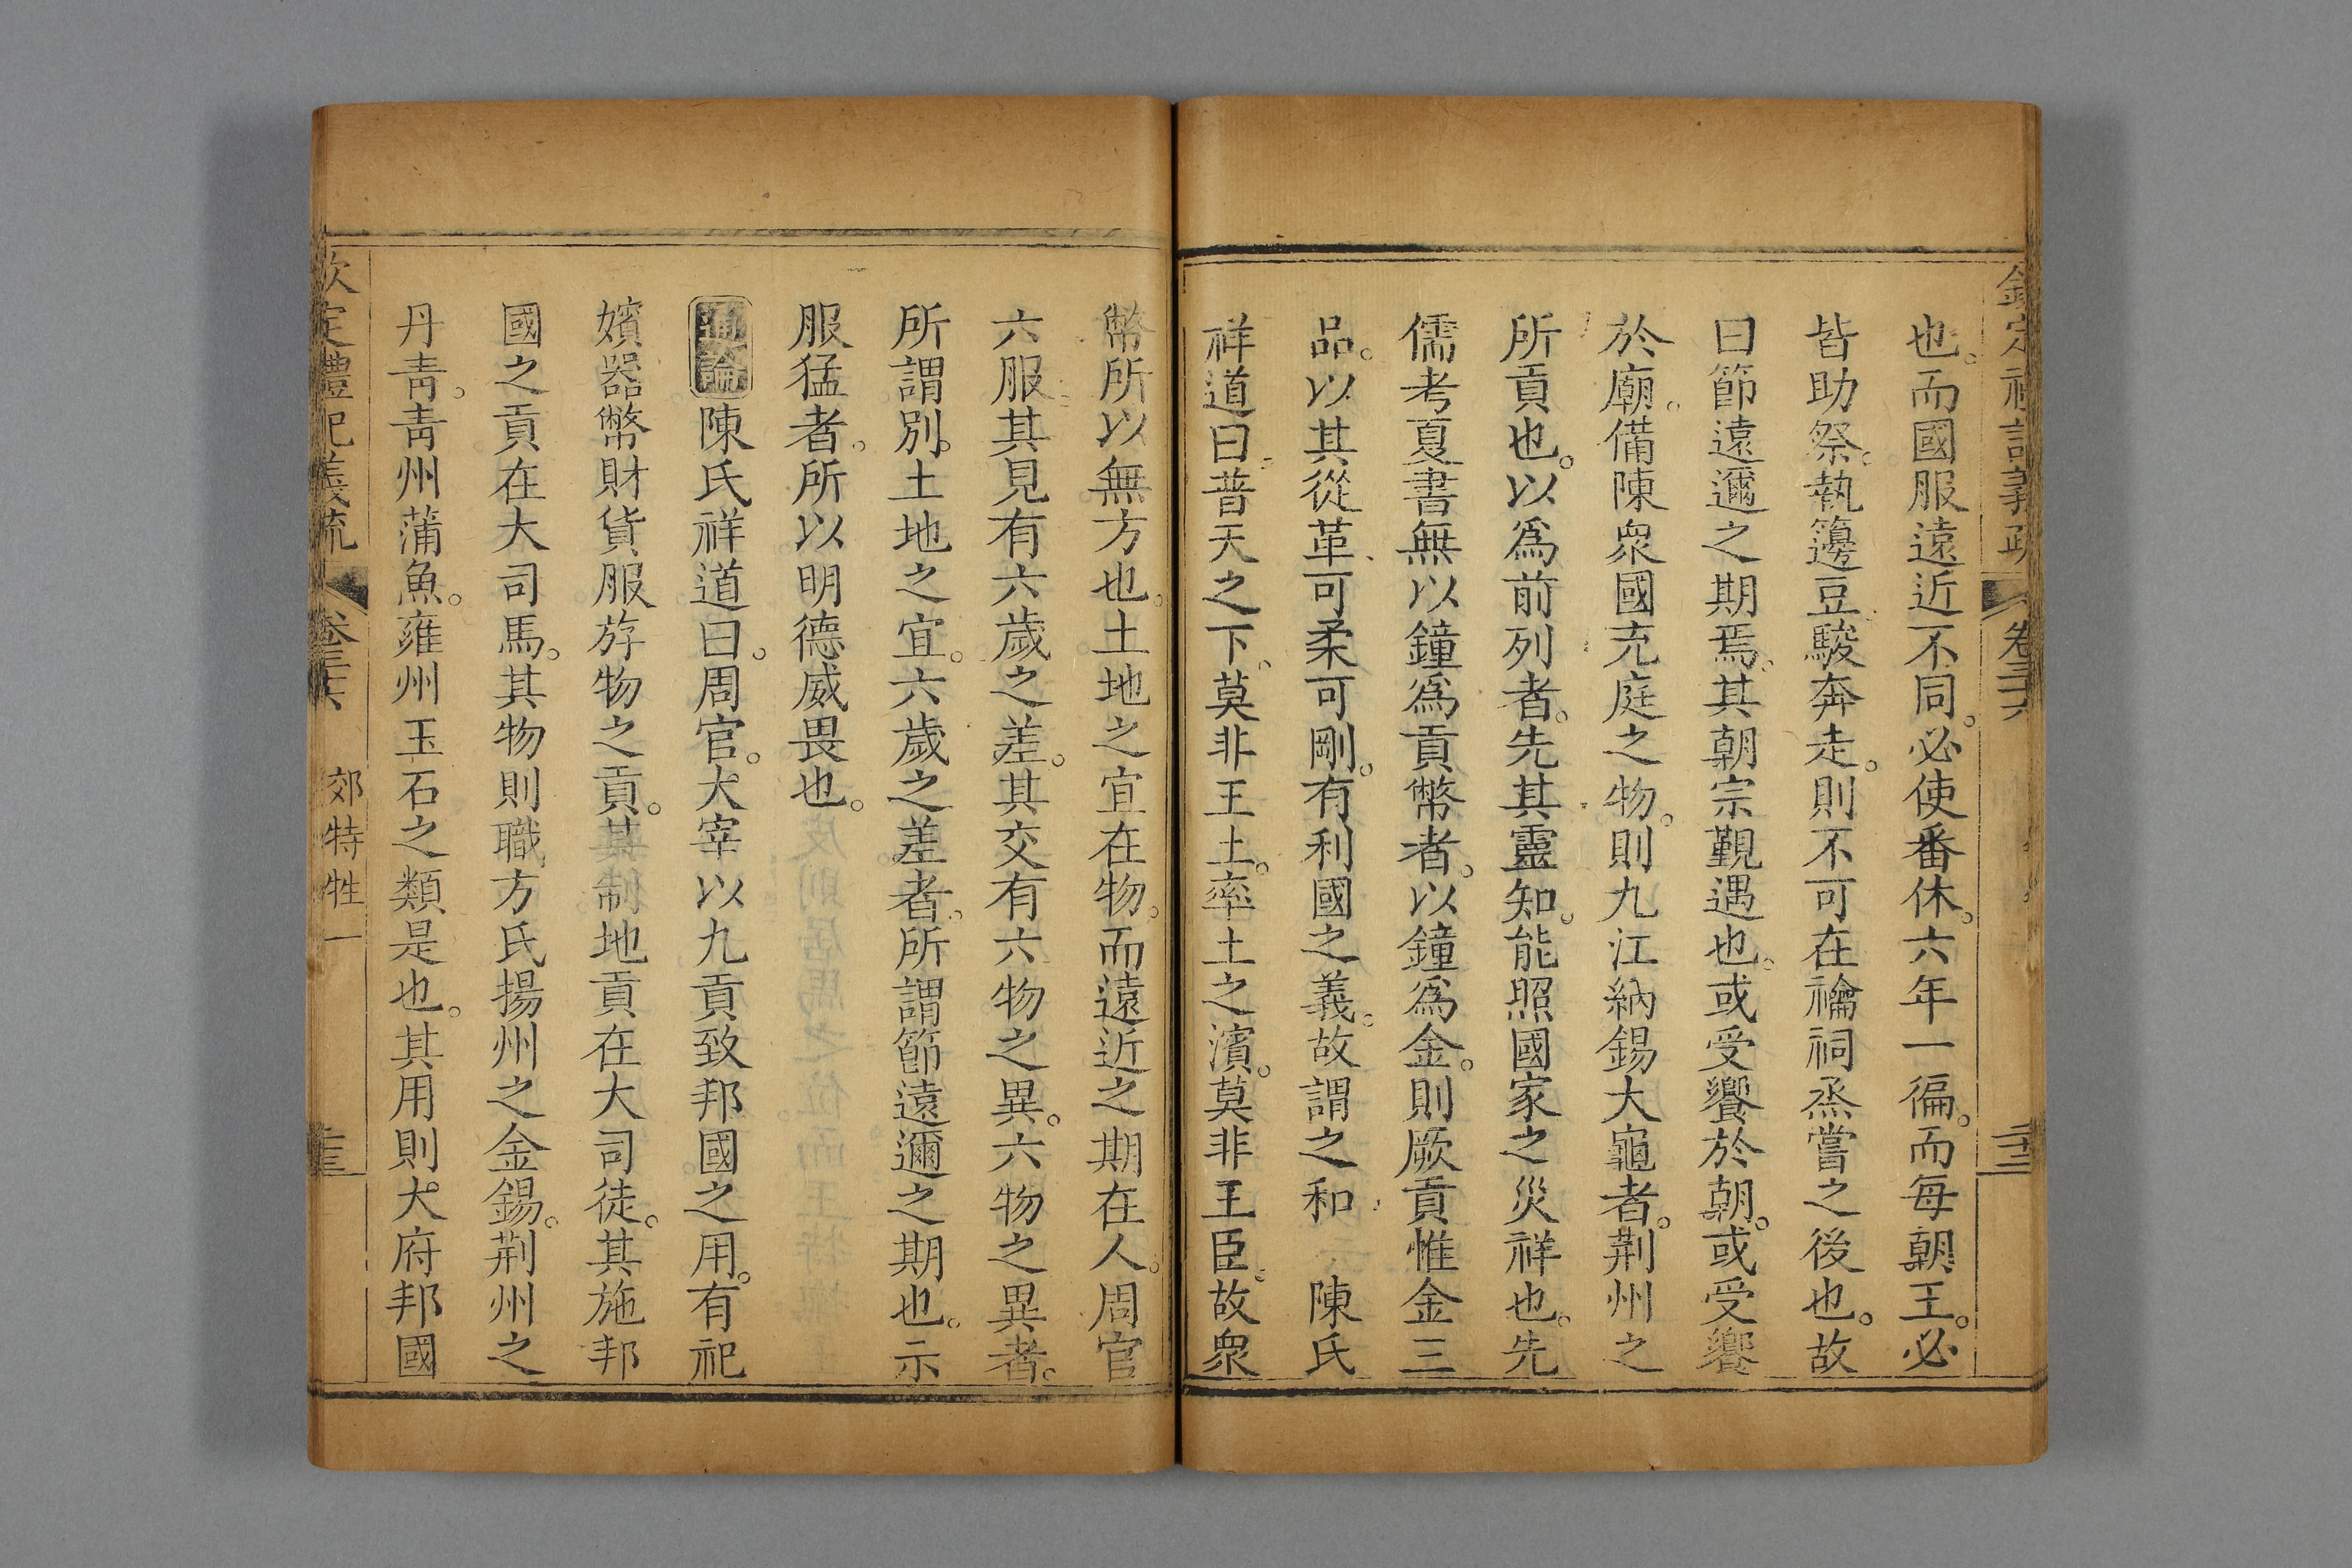 欽定禮記義疏 卷三十六
也。而國服遠近不同。必使番休。六年一徧。而每朝王。必
皆助祭。執籩豆駿奔走。則不可在禴祠烝嘗之後也。故
曰節遠邇之期焉。其朝宗覲遇也。或受饗於朝。或受饗
於廟。備陳衆國充庭之物。則九江納錫大龜者。荆州之
所貢也。以爲前列者。先其靈知。能照國家之災祥也。先
儒考夏書無以鐘爲貢幣者。以鐘爲金。則厥貢惟金三
品。以其從革、可柔可剛。有利國之義。故謂之和 陳氏
祥道曰普天之下。莫非王土。率土之濱。莫非王臣。故衆
幣所以無方也。土地之宜在物。而遠近之期在人。周官
六服。其見有六歲之差。其交有六物之異。六物之異者。
所謂別。土地之宜。六歲之差者。所謂節遠邇之期也。示
服猛者。所以明德威畏也。
通論陳氏祥道曰。周官。大宰以九貢致邦國之用。有祀
嬪器幣財貨服斿物之貢。其制地貢在大司徒。其施邦
國之貢在大司馬。其物則職方氏揚州之金錫。荆州之
丹靑。靑州蒲魚。雍州玉石之類是也。其用則大府邦國
欽定禮記義疏 卷三十六 郊特牲一